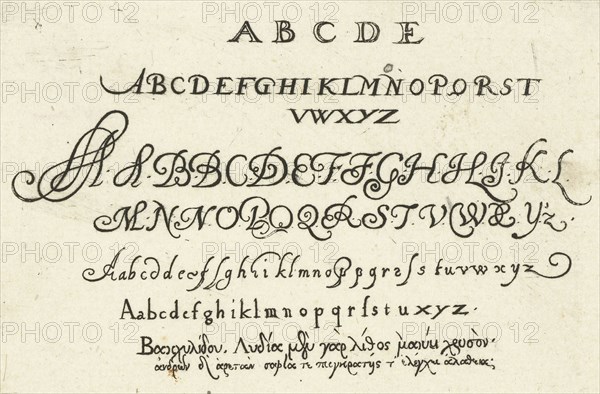 A B C D E
ABCDEFGHIKLMNOPQRST
VWXYZ
A.A.BBCDEFFGHHIKL
M.N.NOPQQRRS.T.V.VWÆ.Y.z.
Aabcddeffghiklmnoppqrsſstuvwxyz
Aabcdefghiklmnopqrſstuxyz.
Βακχυλίδου. Λυδία μὲν γὰρ λίθος μανύει χρυσόν·
ἀνδρῶν δ' ἀρετὰν σοφία τε παγκρατὴς τ' ἐλέγχει ἀλάθεια;
PHOTO 12